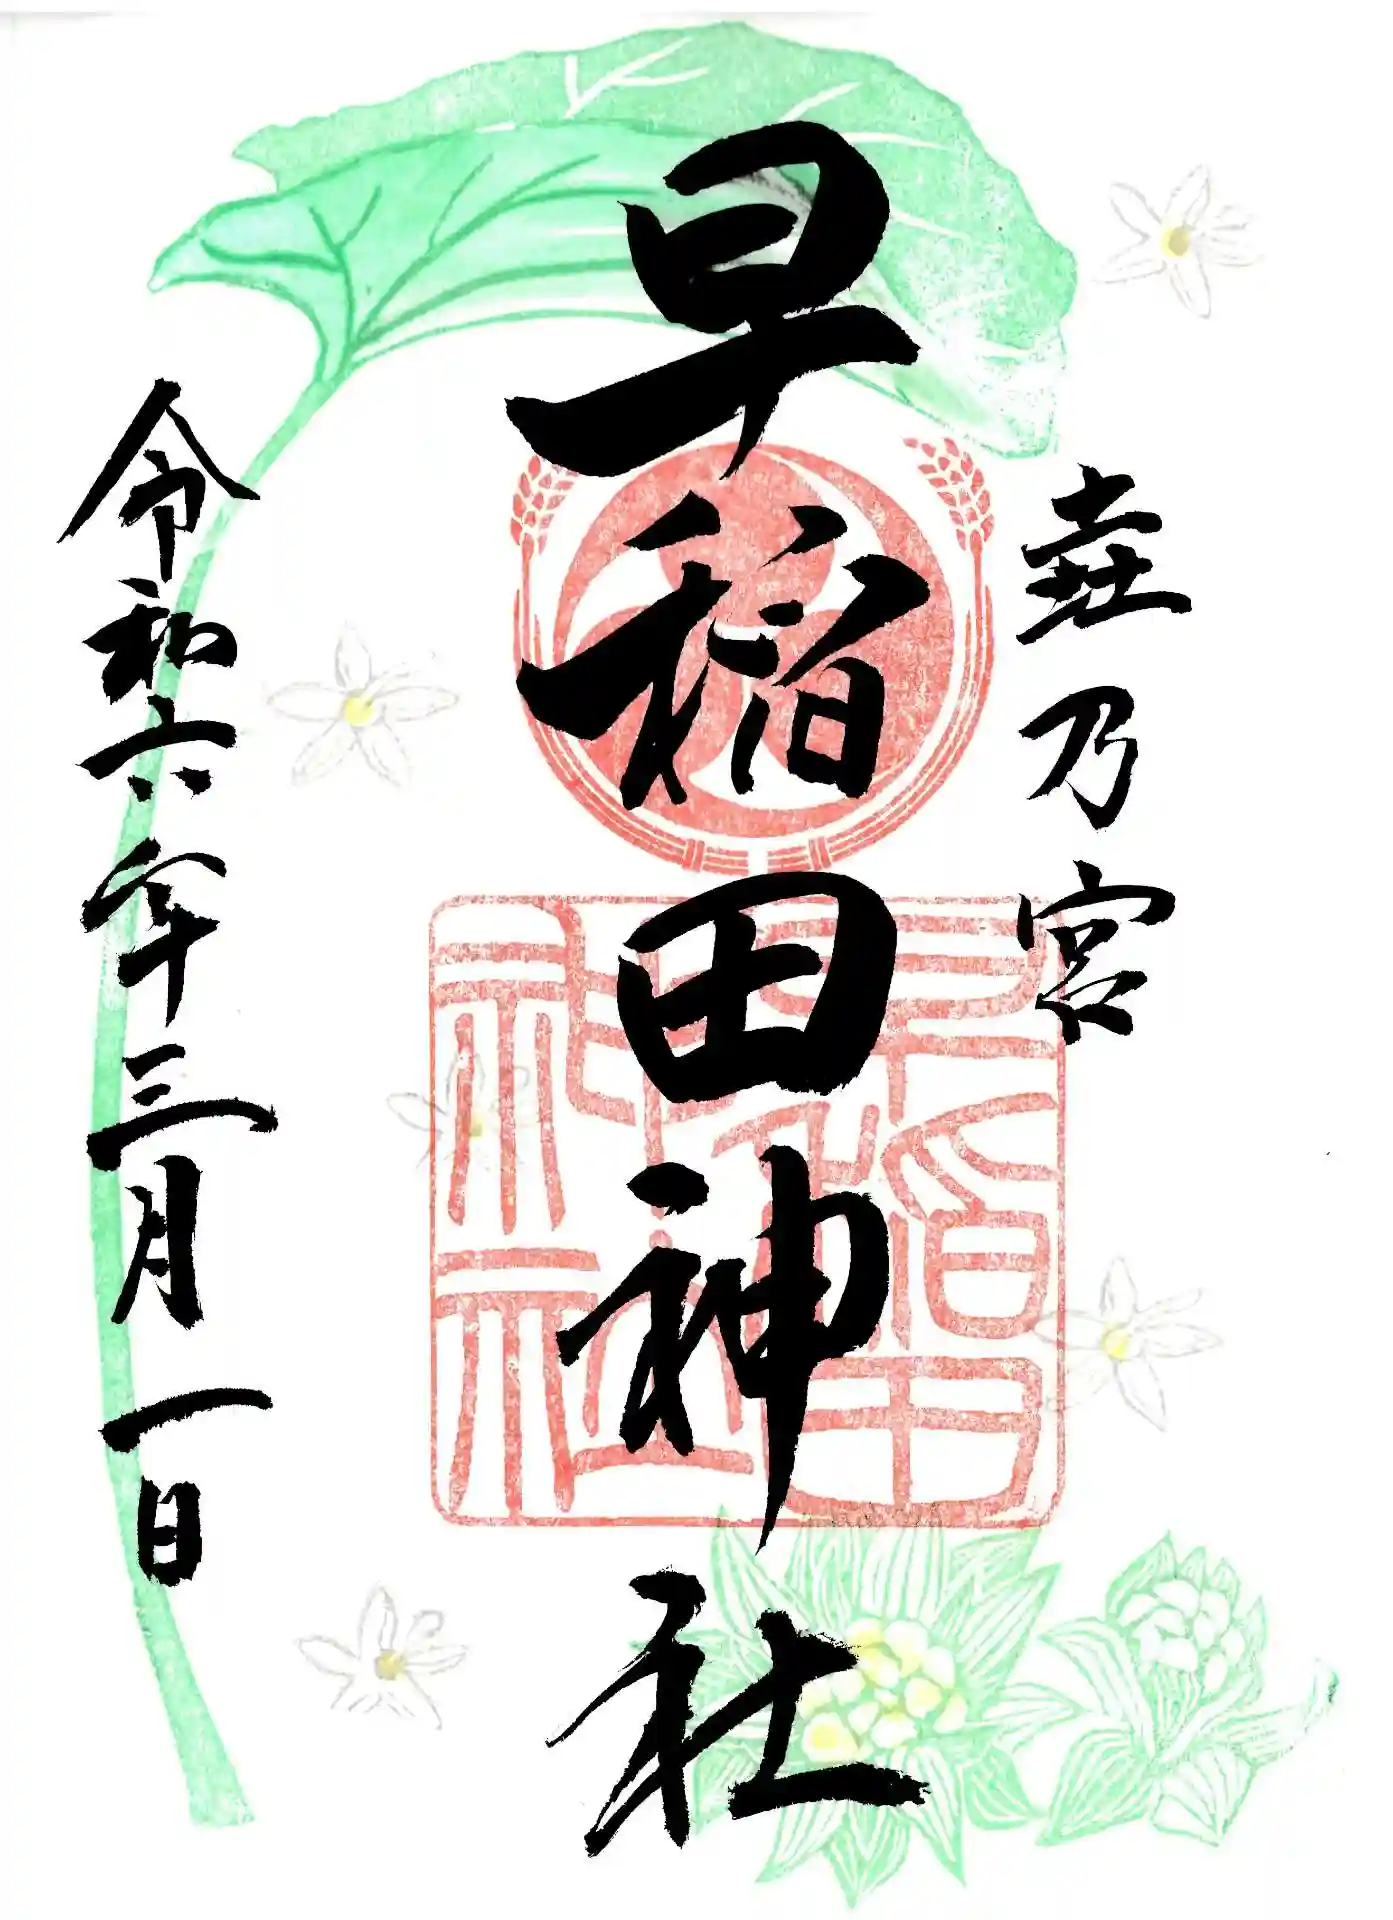 壷乃宮
早稲田神社
令和六年三月一日
早稲田
神社